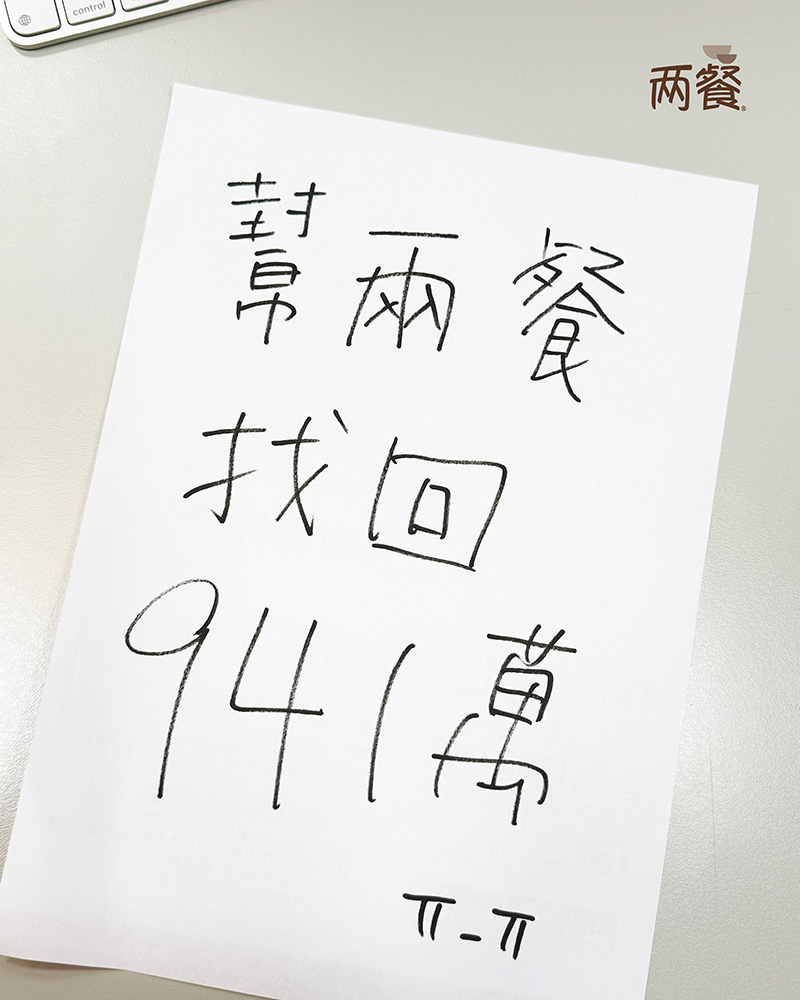 control
两餐®
幫兩餐
找回
941萬
ㅠ-ㅠ